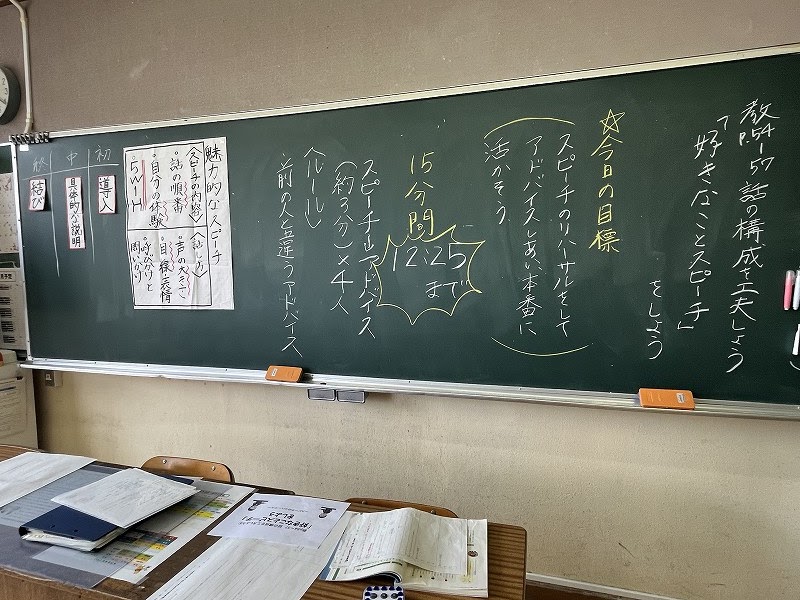 教P.54-57 話の構成を工夫しよう
「好きなことスピーチ」
をしよう
☆今日の目標
スピーチのリハーサルをして
アドバイスしあい、本番に
活かそう
15分間
12:25
まで
スピーチ⇔アドバイス
(約3分)×4人
〈ルール〉
・前の人と違うアドバイス
魅力的なスピーチ
〈スピーチの内容〉
・話の順番
・自分の体験
・5W1H
〈話し方〉
・声の大きさ
・目線・表情
・呼びかけと
問いかけ
初
中
終
導入
具体的な説明
結び